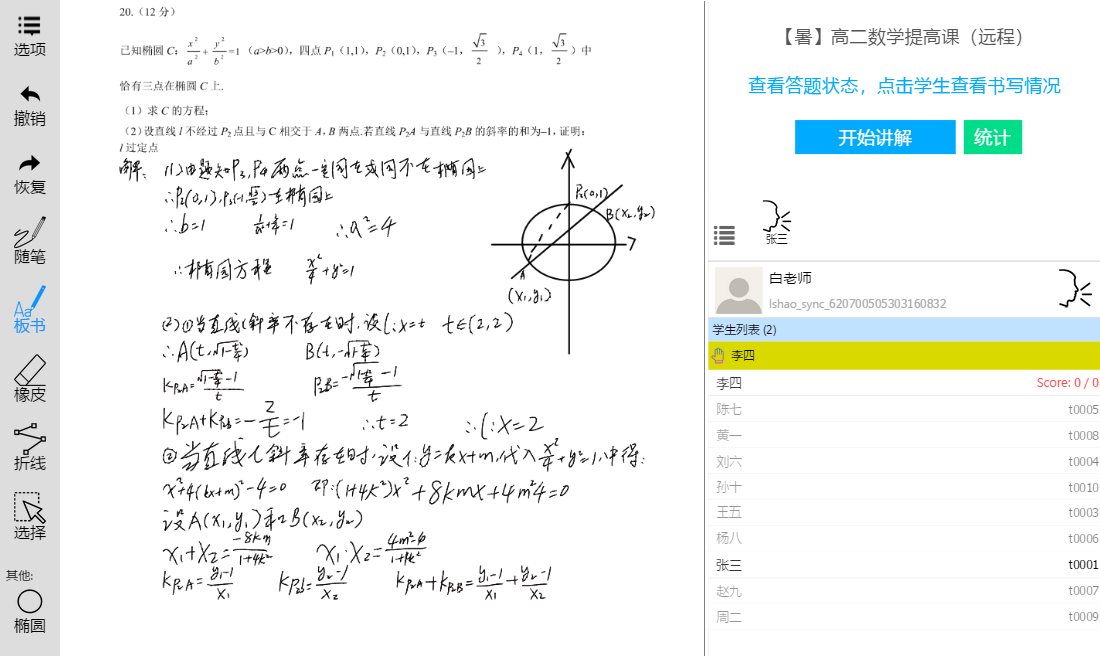 选项
撤销
恢复
随笔
板书
橡皮
折线
选择
其他:
椭圆
20.（12 分）
已知椭圆 C：x²/a²+y²/b²=1（a>b>0），四点 P₁（1,1），P₂（0,1），P₃（–1，√3/2），P₄（1，√3/2）中
恰有三点在椭圆 C 上.
（1）求 C 的方程；
（2）设直线 l 不经过 P₂ 点且与 C 相交于 A，B 两点.若直线 P₂A 与直线 P₂B 的斜率的和为–1，证明：
l 过定点
解: (1)由题知P₃,P₄两点一定同在或同不在椭圆上
∴P₂(0,1),P₃(-1,√3/2)在椭圆上
∴b=1
∴a²=4
∴椭圆方程 x²/4+y²=1
P₂(0,1)
B(x₂,y₂)
A
(x₁,y₁)
(2)①当直线l斜率不存在时,设l:x=t
KP₂A+KP₂B=-2/t=-1 ∴t=2 ∴l:x=2
②当直线l斜率存在时,设l:y=kx+m,代入x²/4+y²=1,中得:
x²+4(kx+m)²-4=0 即:(1+4k²)x²+8kmx+4m²4=0
设A(x₁,y₁)和B(x₂,y₂)
x₁+x₂=-8km/1+4k²
KP₂A=y₁-1/x₁ KP₂B=y₂-1/x₂ KP₂A+KP₂B=y₁-1/x₁+y₂-1/x₂
【暑】高二数学提高课（远程）
查看答题状态，点击学生查看书写情况
开始讲解 统计
张三
白老师
lshao_sync_620700505303160832
学生列表 (2)
李四
李四 Score: 0 / 0
陈七 t0005
黄一 t0008
刘六 t0004
孙十 t0010
王五 t0003
杨八 t0006
张三 t0001
赵九 t0007
周二 t0009